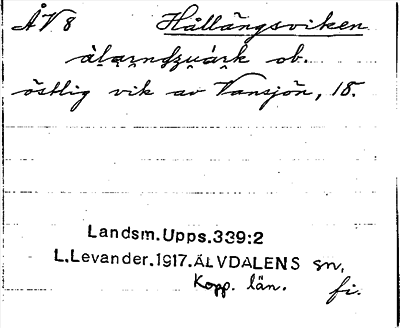 ÅV 8 Hållängsviken
ob.
östlig vik av Vansjön, 18.
Landsm.Upps.339:2
L.Levander.1917.ÄLVDALENS sn,
Kopp. län. fi.